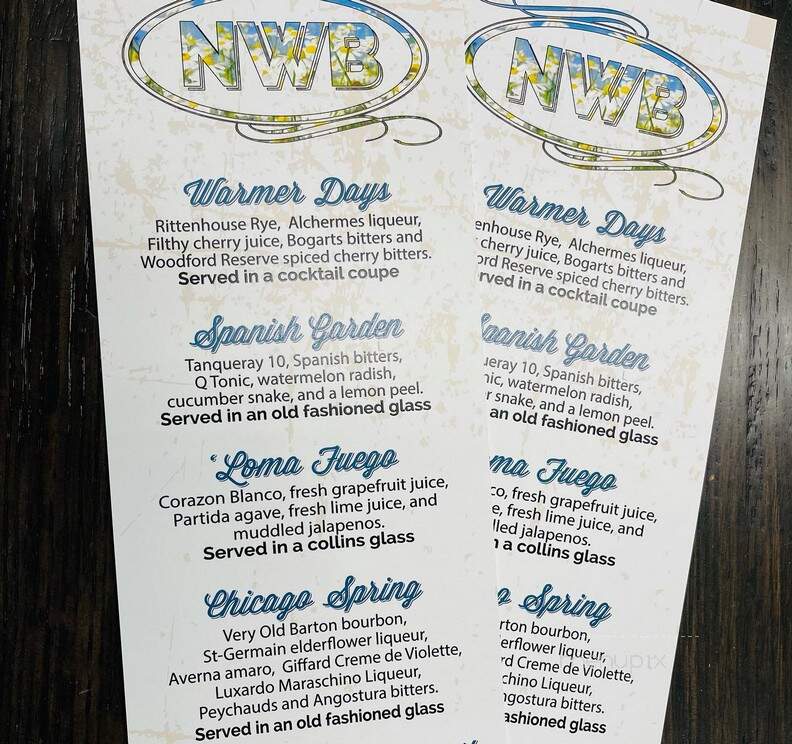 NWB
Warmer Days
Rittenhouse Rye, Alchermes liqueur,
Filthy cherry juice, Bogarts bitters and
Woodford Reserve spiced cherry bitters.
Served in a cocktail coupe
Spanish Garden
Tanqueray 10, Spanish bitters,
Q Tonic, watermelon radish,
cucumber snake, and a lemon peel.
Served in an old fashioned glass
'Loma Fuego
Corazon Blanco, fresh grapefruit juice,
Partida agave, fresh lime juice, and
muddled jalapenos.
Served in a collins glass
Chicago Spring
Very Old Barton bourbon,
St-Germain elderflower liqueur,
Averna amaro, Giffard Creme de Violette,
Luxardo Maraschino Liqueur,
Peychauds and Angostura bitters.
Served in an old fashioned glass
NWB
Warmer Days
enhouse Rye, Alchermes liqueur,
cherry juice, Bogarts bitters and
ord Reserve spiced cherry bitters.
rved in a cocktail coupe
Spanish Garden
ueray 10, Spanish bitters,
nic, watermelon radish,
r snake, and a lemon peel.
an old fashioned glass
ma Fuego
co, fresh grapefruit juice,
e, fresh lime juice, and
lled jalapenos.
n a collins glass
o Spring
rton bourbon,
erflower liqueur,
rd Creme de Violette,
chino Liqueur,
ngostura bitters.
ashioned glass